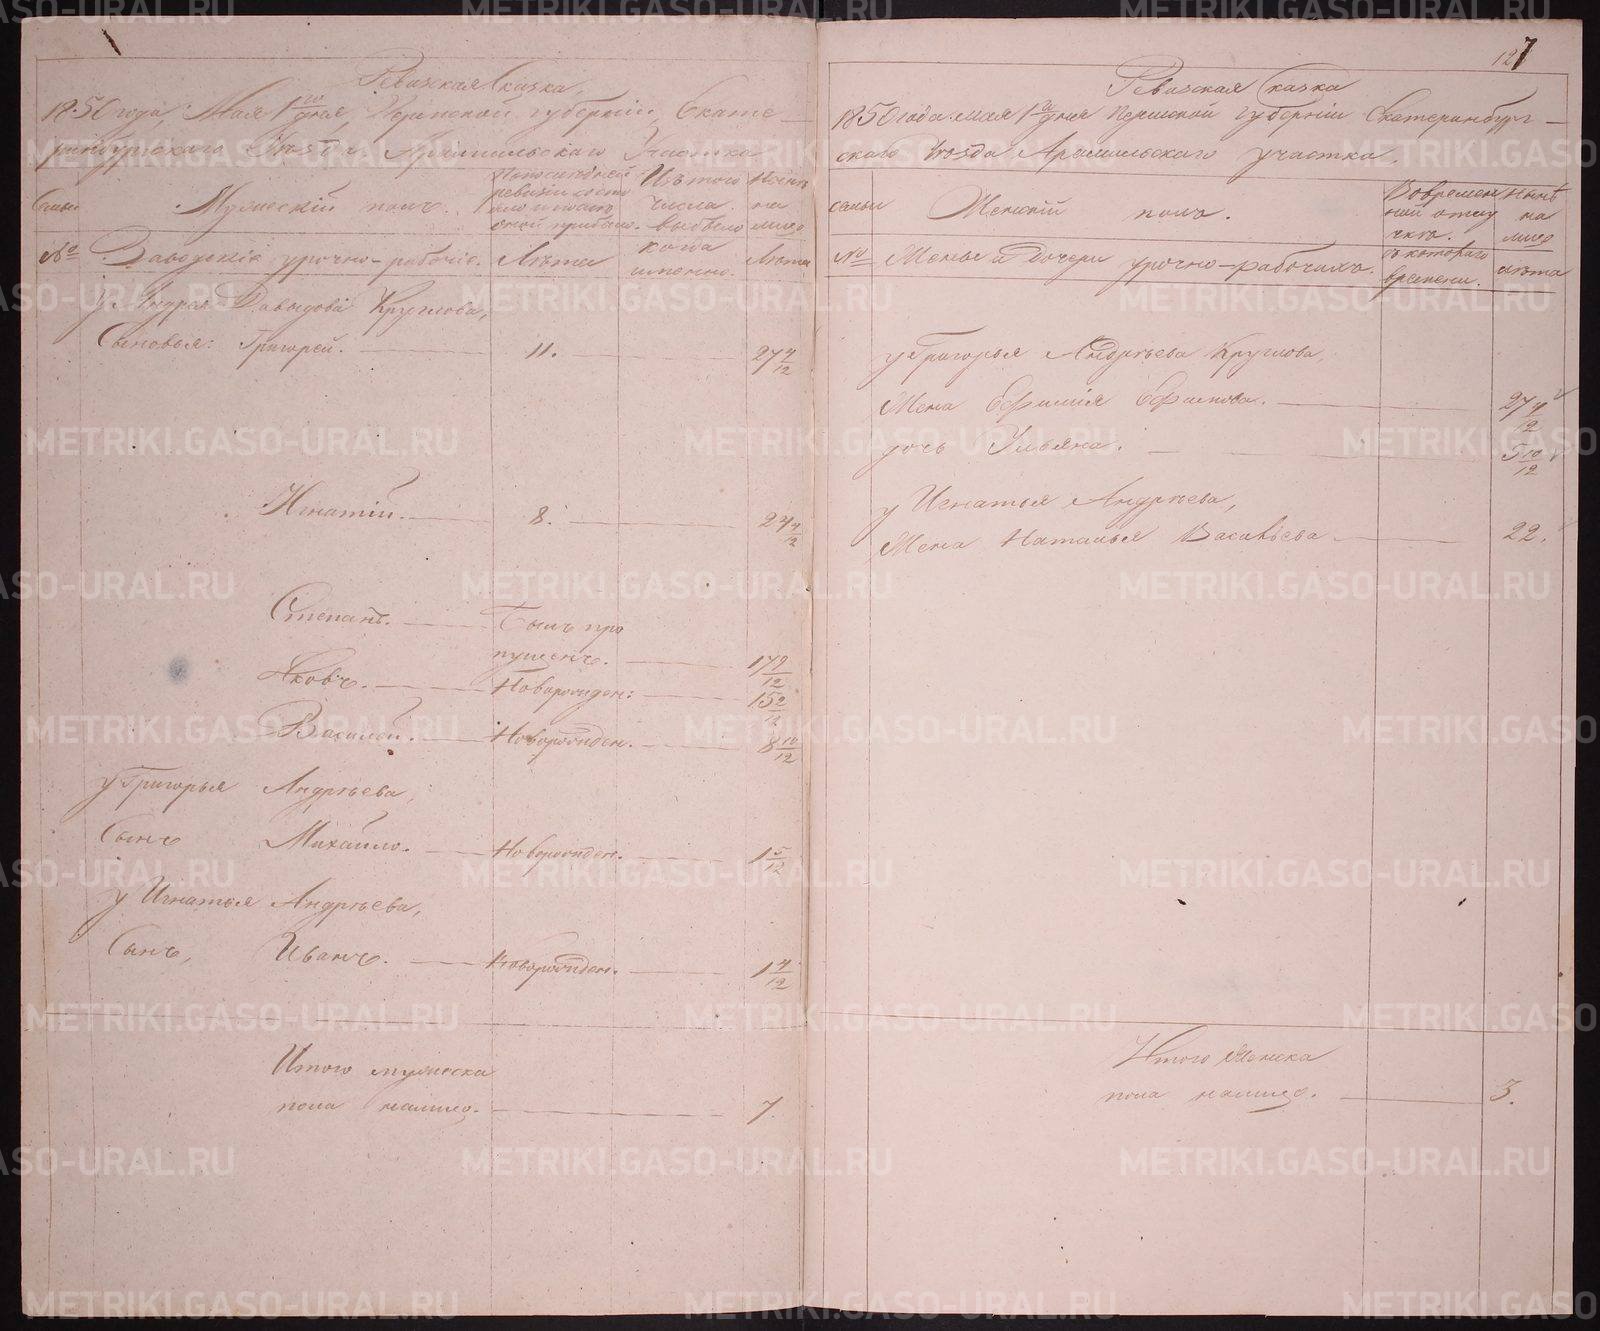 Ревизская Сказка,
1850 года Мая 1го дня, Пермской губерніи, Екате–
ринбургскаго Уѣзда, Арамильскаго Участка
Семьи
Мужескій полъ.
По последней ревизіи состояло и после оной прибыло.
Изъ того числа выбыло
Нынѣ на лицо
№
Заводскіе урочно-рабочіе.
Лѣта
когда именно.
Лѣта
у Андрея Давыдова Круглова,
Сыновья: Григорей. 11. 27 4/12
Игнатій. 8. 24 4/12
Степанъ. Былъ про
пущенъ. 17 9/12
Яковъ. Новорожден: 15 2/12
Василей. Новорожден. 8 10/12
у Григорья Андрѣева,
Сынъ Михайло. Новорожден. 1 5/12
у Игнатья Андрѣева,
Сынъ, Иванъ. Новорожден. 1 4/12
Итого мужеска
пола налицо. 7.
127
Ревизская Сказка
1850 года мая 1го дня Пермской Губерніи Екатеринбург–
скаго Уѣзда Арамильскаго участка.
семьи
Женскій полъ.
Во временной отлучкѣ.
Нынѣ на лицо
№
Жены и Дочери урочно-рабочихъ.
съ котораго времени.
лѣта
у Григорья Андрѣева Круглова,
Жена Ефимія Ефимова. 27 4/12
дочь Ульяна. 5 10/12
у Игнатья Андрѣева,
Жена Наталья Васильева 22.
Итого Женска
пола налицо. 3.
METRIKI.GASO-URAL.RU